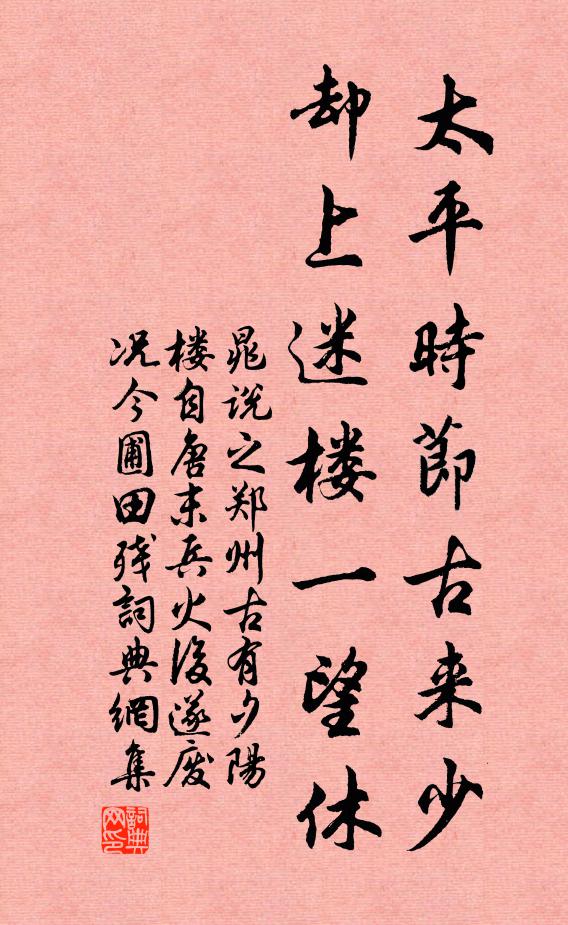 太平時節古来少
却上迷楼一望休
晁说之郑州古有夕陽
楼自唐末兵火後遂废
况今圃田残詞典網集
詞典网印